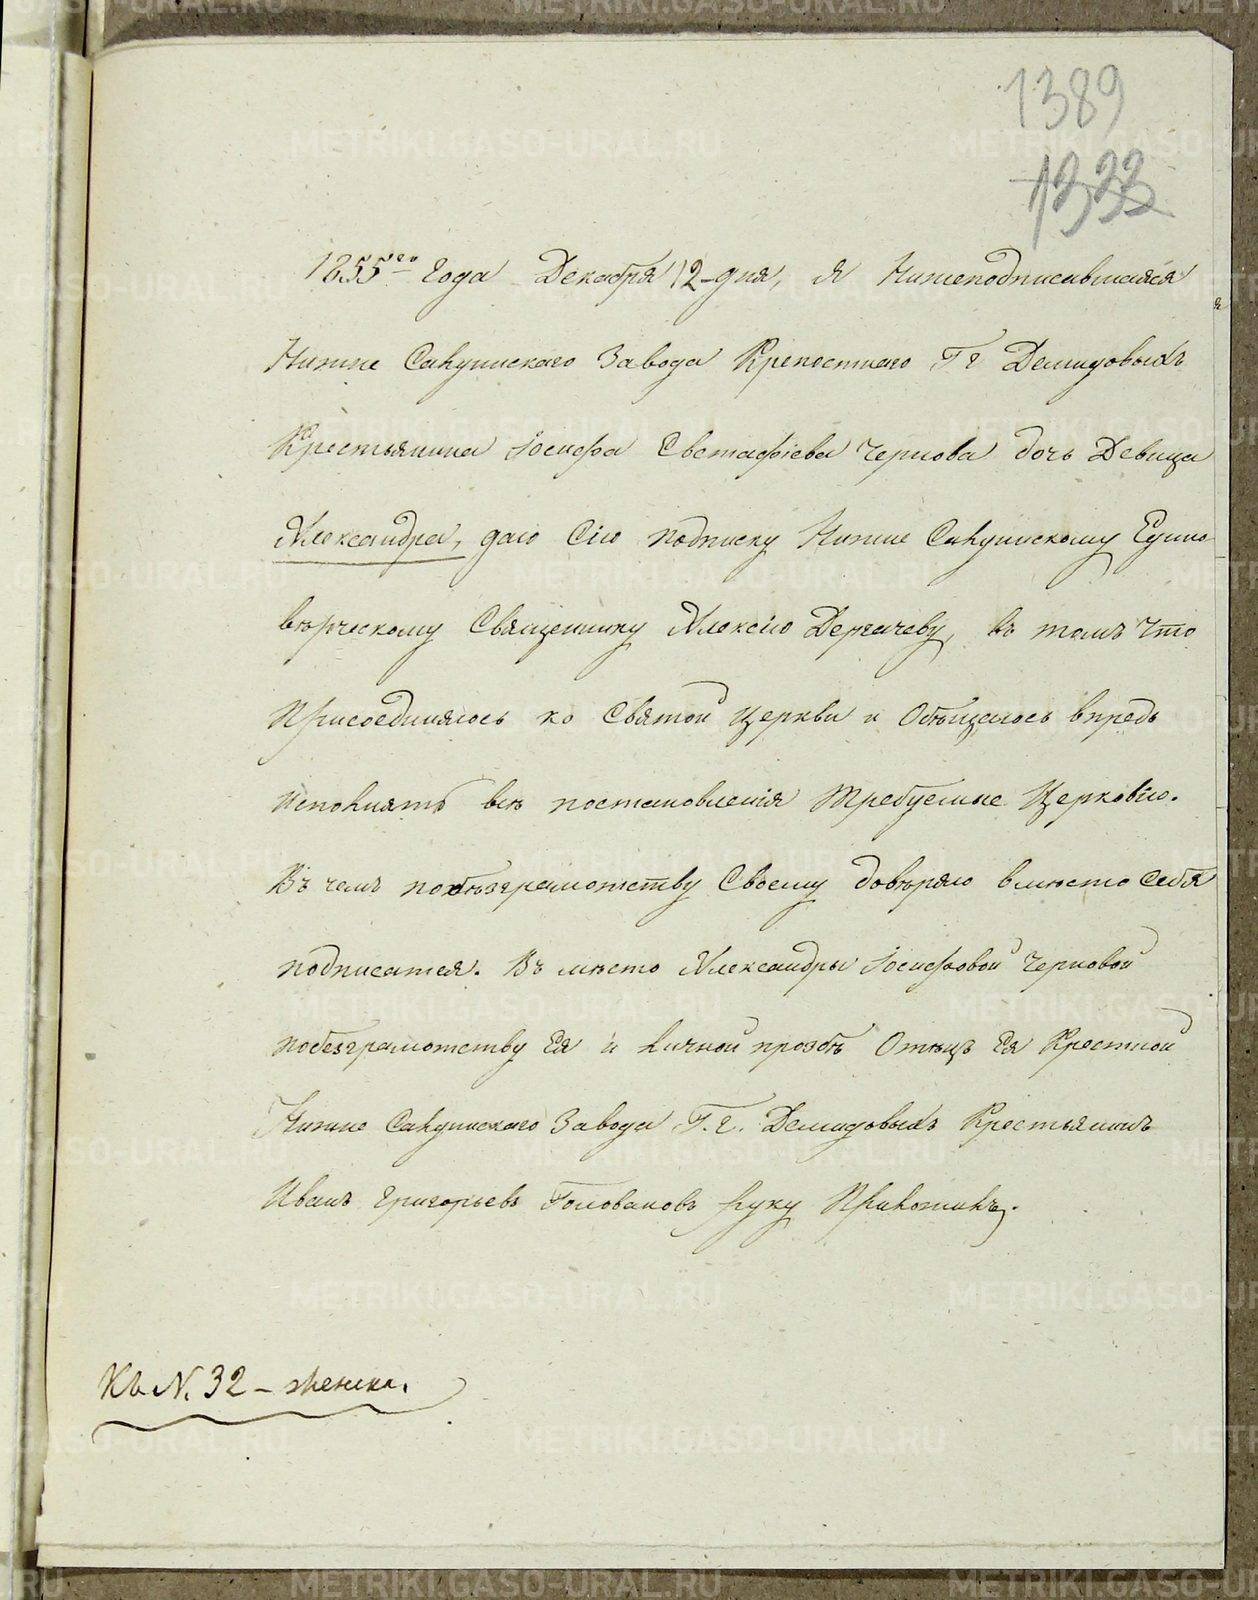 1389
1333
1855го года Декабря 12 дня, я Нижеподписавшаяся
Нижне Салдинскаго Завода Крепостнаго Гг Демидовыхъ
Крестьянина Іосифа Евстафіева Чернова дочь Девица
Александра, даю Сію подписку Нижне Салдинскому Едино
верческому Священнику Алексію Дергачеву, въ томъ что
Присоединяюсь ко Святой Церкви и Обѣщаюсь впредь
исполнять всѣ постановленія Требуемые Церковію.
Въ чемъ по безграмотству Своему довѣряю вместо Себя
подписатся. Въ мѣсто Александры Іосифовой Черновой
по безграмотству Ея и личной прозбѣ Отецъ Ея Крестной
Нижне Салдинскаго Завода Г.г. Демидовыхъ Крестьянинъ
Иванъ Григорьевъ Головановъ руку Приложилъ.
Къ N. 32 – женска.
METRIKI.GASO-URAL.RU